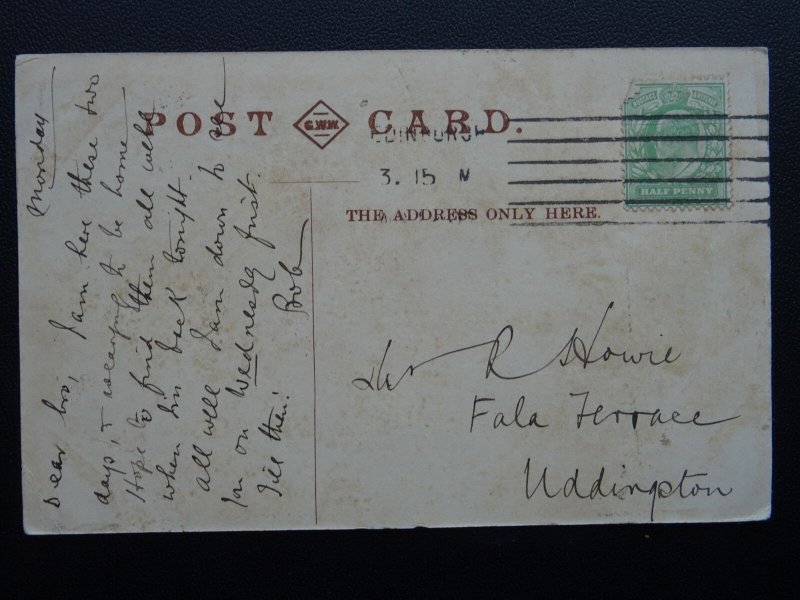 POST CARD.
G.W.W.
EDINBURGH
3. 15
HALF PENNY
THE ADDRESS ONLY HERE.
Monday
Dear bro, I am here these two
days, & to be home
Hope to find them all well
when I'm back tonight.
all well I am down to see
on Wednesday first.
Till then! Bob
Mr R Howie
Fala Terrace
Uddingston